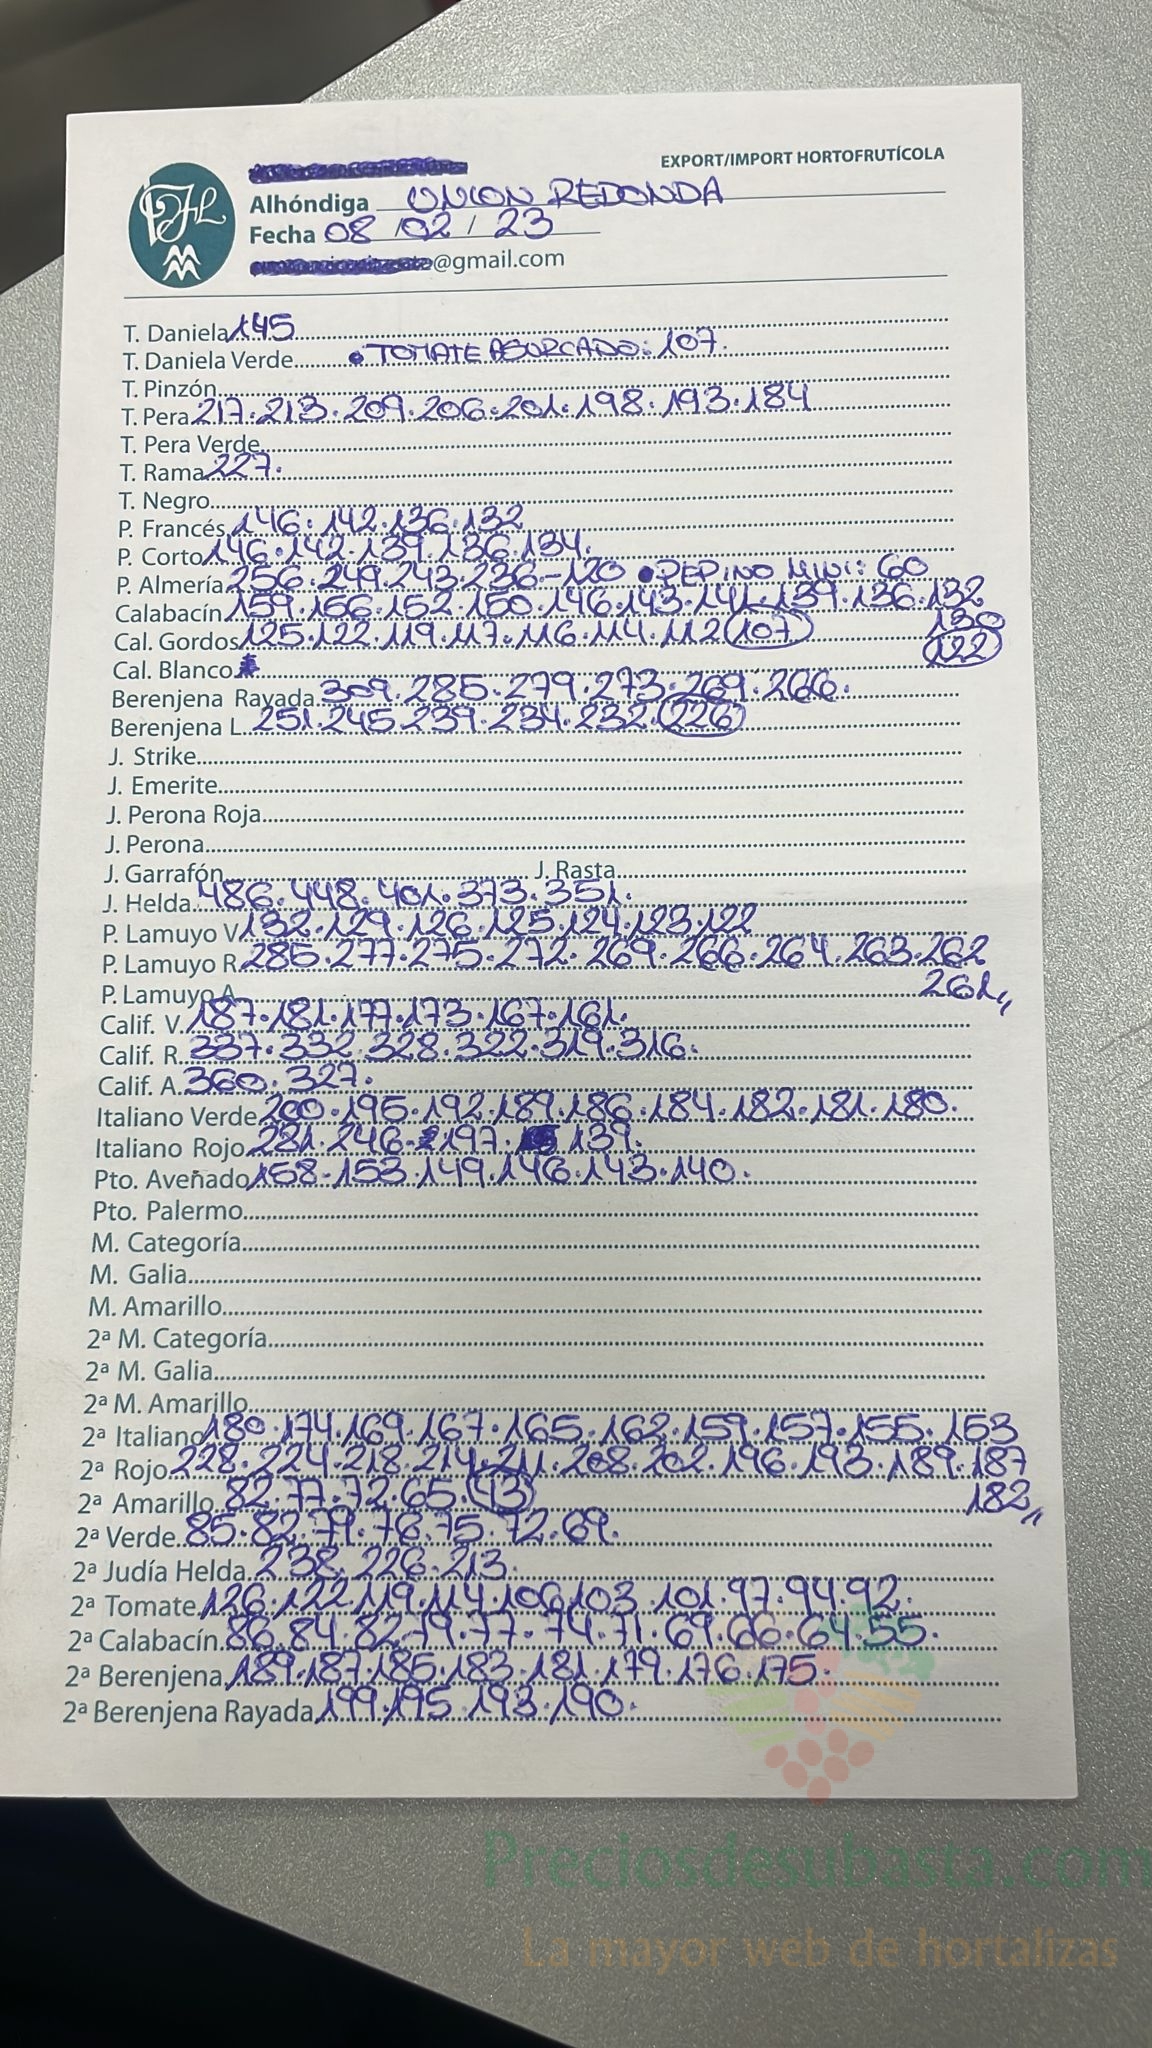 EXPORT/IMPORT HORTOFRUTÍCOLA
Alhóndiga UNION REDONDA
Fecha 08 / 02 / 23
@gmail.com
T. Daniela 145
T. Daniela Verde • TOMATE ASURCADO: 107.
T. Pinzón
T. Pera 217. 213. 209. 206. 201. 198. 193. 184
T. Pera Verde
T. Rama 227.
T. Negro
P. Francés 146. 142. 136. 132
P. Corto 146. 142. 139. 136. 134.
P. Almería 256. 249. 243. 236 - 120 • PEPINO MINI: 60
Calabacín 159. 156. 152. 150. 146. 143. 141. 139. 136. 132
130
Cal. Gordos 125. 122. 119. 117. 116. 114. 112 (107)
(122)
Cal. Blanco
Berenjena Rayada 309. 285. 279. 273. 269. 266.
Berenjena L. 251. 245. 239. 234. 232. (226)
J. Strike
J. Emerite
J. Perona Roja
J. Perona
J. Garrafón J. Rasta
J. Helda 486. 448. 401. 373. 351.
P. Lamuyo V. 132. 129. 126. 125. 124. 123. 122
P. Lamuyo R. 285. 277. 275. 272. 269. 266. 264. 263. 262
P. Lamuyo A. 261,,
Calif. V. 187. 181. 177. 173. 167. 161.
Calif. R. 337. 332. 328. 322. 319. 316.
Calif. A. 360. 327.
Italiano Verde 200. 195. 192. 189. 186. 184. 182. 181. 180.
Italiano Rojo 281. 246. 197. 139.
Pto. Aveñado 158. 153. 149. 146. 143. 140.
Pto. Palermo
M. Categoría
M. Galia
M. Amarillo
2ª M. Categoría
2ª M. Galia
2ª M. Amarillo
2ª Italiano 180. 174. 169. 167. 165. 162. 159. 157. 155. 153
2ª Rojo 228. 224. 218. 214. 211. 208. 202. 196. 193. 189. 187
2ª Amarillo 82. 77. 72. 65. (43) 182,,
2ª Verde 85. 82. 79. 76. 75. 72. 69.
2ª Judía Helda 238. 226. 213.
2ª Tomate 126. 122. 119. 114. 106. 103. 101. 97. 94. 92.
2ª Calabacín 86. 84. 82. 79. 77. 74. 71. 69. 66. 64. 55.
2ª Berenjena 189. 187. 185. 183. 181. 179. 176. 175.
2ª Berenjena Rayada 199. 195. 193. 190.
Preciosdesubasta.com
La mayor web de hortalizas